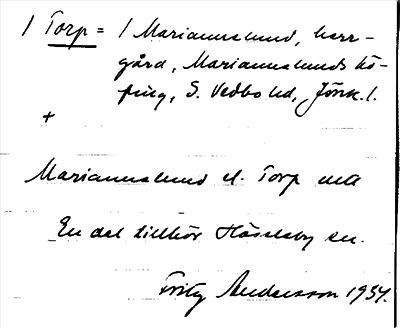 1 Torp = / Mariannelund, herr-
gård, Mariannelunds kö-
ping, S. Vedbo hd, Jönk. l.
+
Mariannelund el. Torp
En del tillhör Hässleby sn.
Fritz Andersson 1934.